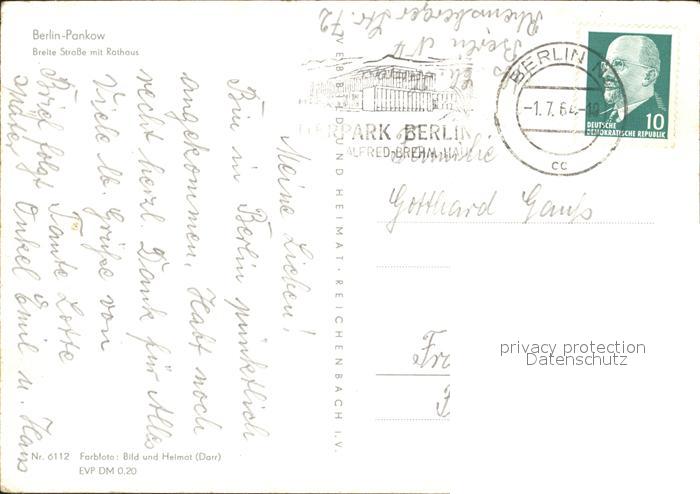 Berlin-Pankow
Breite Straße mit Rathaus
Meine Lieben!
Bin in Berlin pünktlich
angekommen. Habt noch
recht herzl. Dank für Alles
Viele lb. Grüße von
Tante Lotte
Brief folgt Onkel Emil u. Hans
später
Nr. 6112 Farbfoto: Bild und Heimat (Darr)
EVP DM 0,20
VEB BILD UND HEIMAT · REICHENBACH I. V.
Rheinsberger Str. 72
Berlin N 4
TIERPARK BERLIN
ALFRED-BREHM-HAUS
BERLIN N
-1.7.64-19
cc
DEUTSCHE
DEMOKRATISCHE REPUBLIK
10
Familie
Gotthard Gauß
privacy protection
Datenschutz